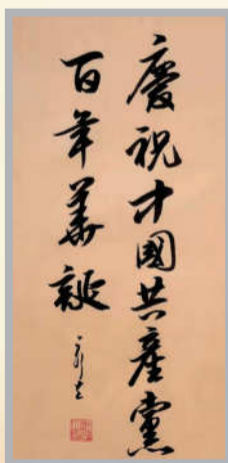 慶祝中國共產黨
百年華誕